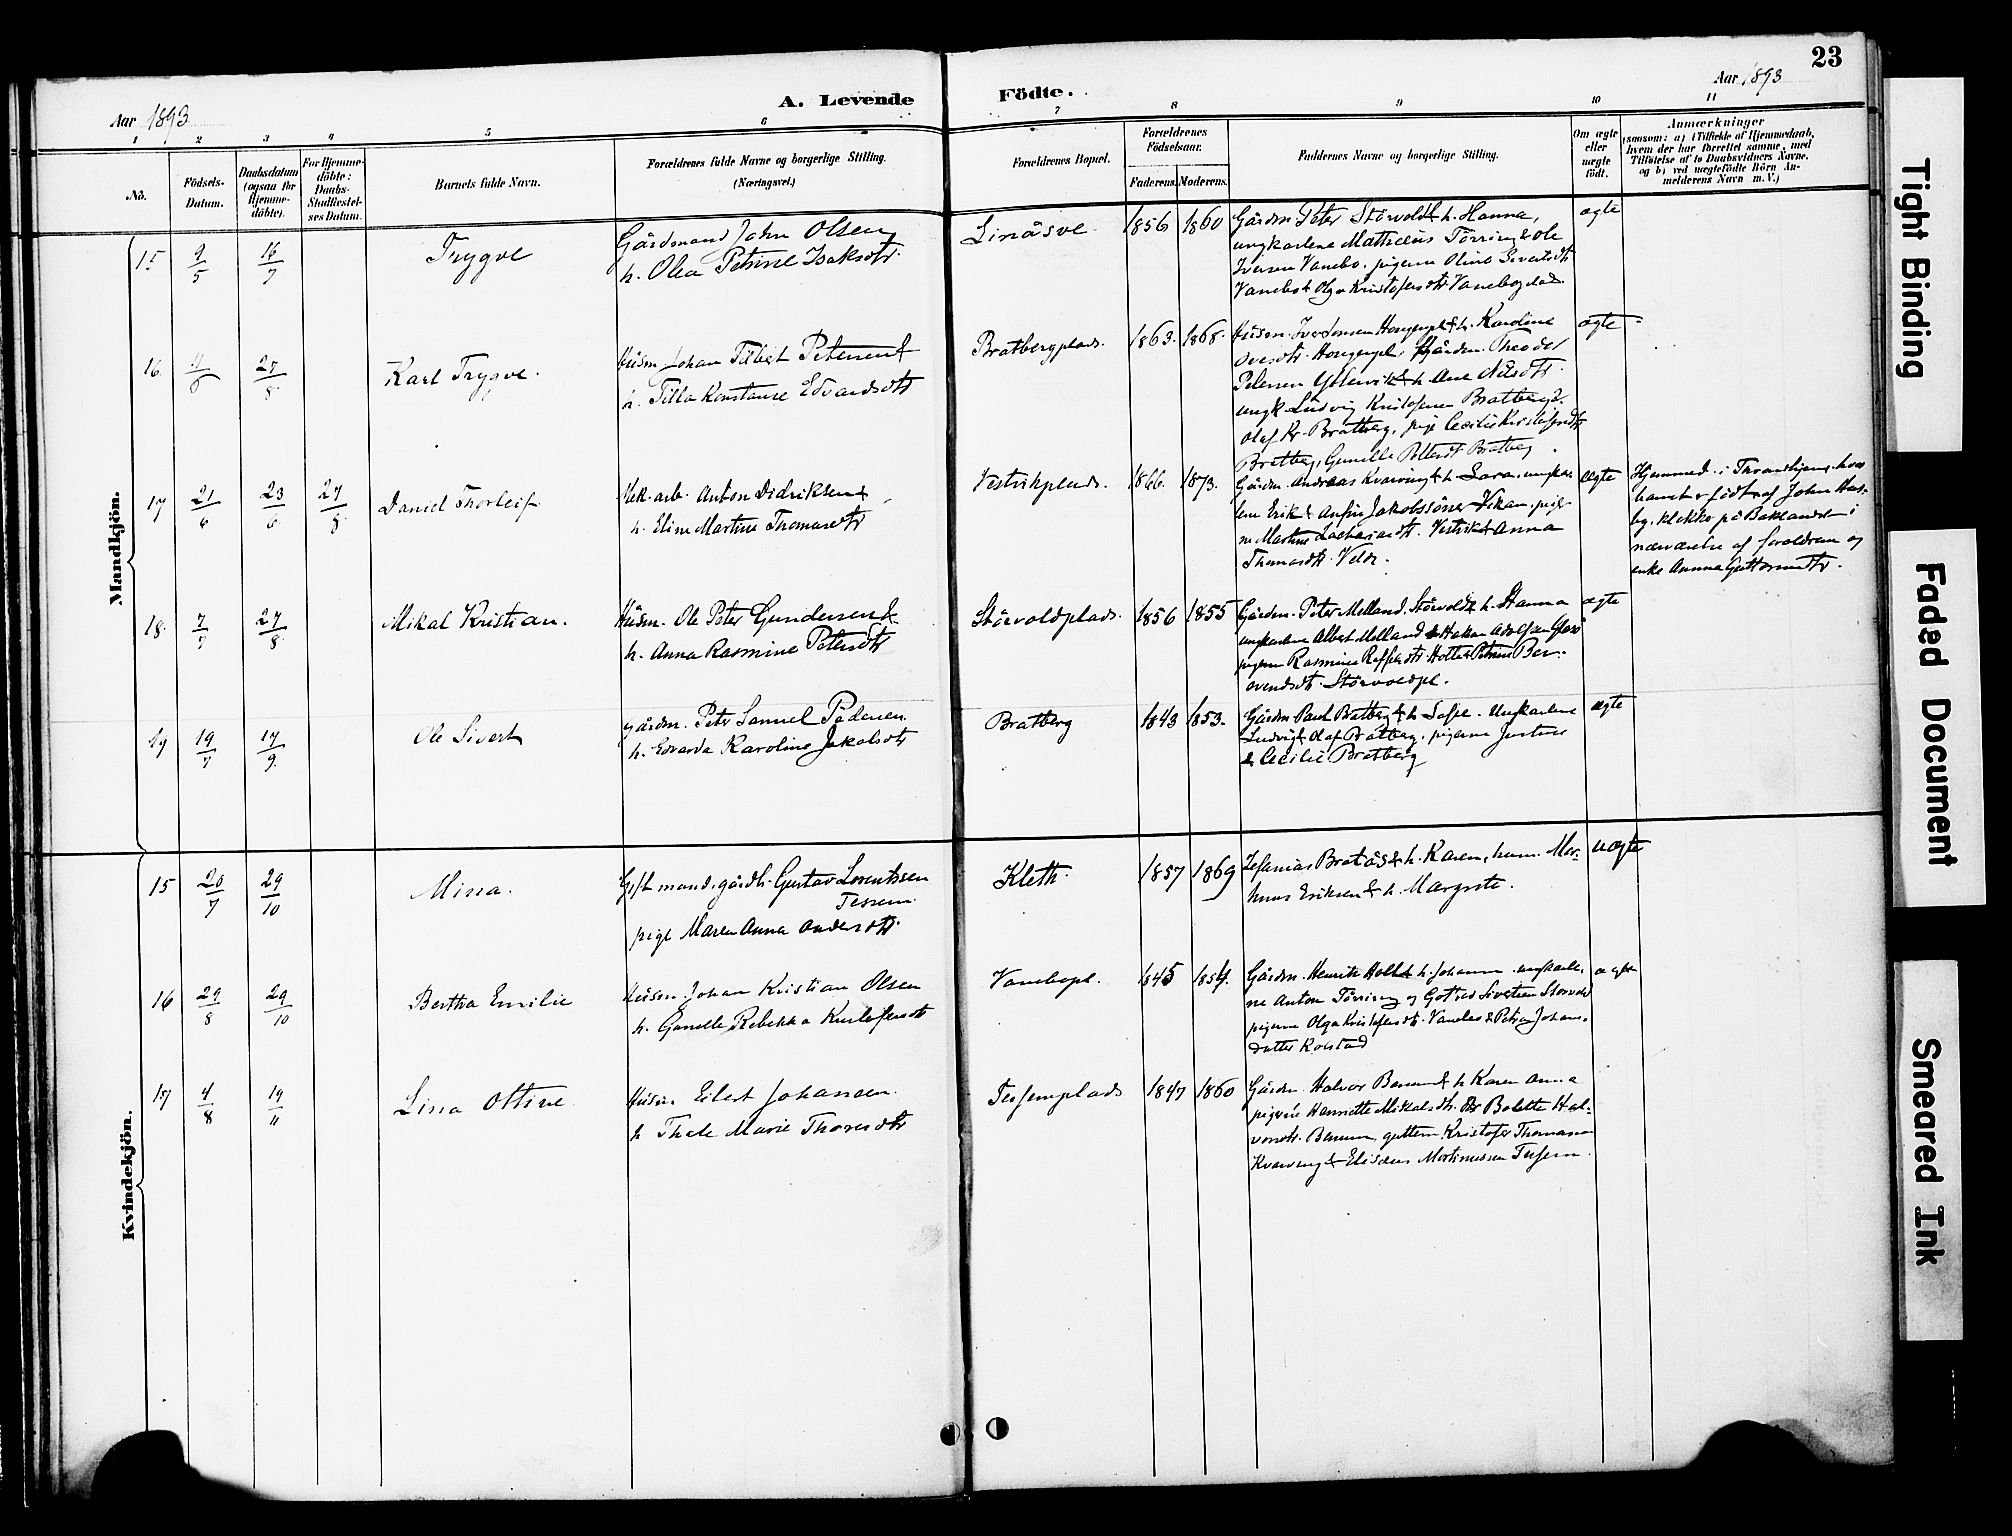 23
Aar 1893
A. Levende
Födte.
Aar 1893
1 2 3 4 5 6 7 8 9 10 11
No.
Födsels-
Datum.
Daabsdatum
(ogsaa for
Hjemme-
döbte).
For Hjemme-
döbte:
Daabs-
Stadfæstel-
ses Datum.
Barnets fulde Navn.
Forældrenes fulde Navne og borgerlige Stilling.
(Næringsvei.)
Forældrenes Bopæl.
Forældrenes
Födselsaar.
Faderens. Moderens.
Faddernes Navne og borgerlige Stilling.
Om ægte
eller
uægte
födt.
Anmærkninger
(saasom: a) i Tilfælde af Hjemmedaab,
hvem der har forrettet samme, med
Tilföielse af to Daabsvidners Navne,
og b) ved uægtefödte Börn An-
melderens Navn m. V.)
Mandkjön.
15 9/5 16/7 Trygve
Gårdmand John Olsen
h. Olea Petrine Isaksdtr.
Linåsve 1856 1860
Gårdm. Peter Störvold & h. Hanna,
ungkarlene Mathæus Törring & Ole
Iversen Vanebo, pigerne Oline Sivertsdtr
Vanebo & Olga Kristofersdtr Vanebogdal.
ægte
16. 27/8 Karl Trygve.
Husm. Johan Petersen &
h. Konstanse Edvardsdtr
Bratbergplads. 1863. 1868.
Husm. h. Karoline
Gårdm. Theodor
Petersen & h. Ane Nilsdtr.
ungk. Ludvig Kristofersen Bratberg &
Olaf Kr. Bratberg, pige Cecilie Kristofersdtr
Bratberg, Gunelle Bratberg
ægte
17 21/6 23/6 27/8 Daniel Thorleif.
Mek. arb. Anton Didriksen &
h. Eline Martine Thomasdtr
Vestvikplads. 1866. 1873.
Gårdm. Andreas Kvarving & h. Sara, ungkar-
lene Erik & Jakobssöner Vikan, piger-
ne Martine Zachariasdtr. Vestvik & Anna
Thomasdtr.
ægte
Hjemmed. i Throndhjem, hvor
barnet er født af John Has-
by, klokker på Baklandet i
nærværelse af forældrene og
enke Anna Guttormsdtr.
18. 7/7 27/8 Mikal Kristian.
Husm. Ole Peter Gundersen &
h. Anna Rasmine Petersdtr
Störvoldplads. 1856 1855
Gårdm. Peter Melland, Störvold & h. Hanna
ungkarlene Albert Melland & Hakon Adolfsen
pigerne Rasmine Holte & Petrine Ber-
Störvoldpl.
ægte
19 19/7 17/9 Ole Sivert
gårdm. Peter Samuel Pedersen
h. Edvarda Karoline Jakobsdtr
Bratberg 1843 1853.
Gårdm. Paul Bratberg & h. Ungkarlene
Ludvig & Olaf Bratberg, pigerne Justine
& Cecilie Bratberg
ægte
Kvindekjön.
15 20/7 29/10 Mina.
Gift mand, gårdbr. Gustav Lorentssen
Tessem
pige Maren Anna Andersdtr.
Kleth. 1857 1869
Zefanias Bratås & h. Karen, husm. Mor-
Eriksen & h. Margrete.
uægte
16 29/8 29/10 Bertha Emilie
Husm. Johan Kristian Olsen
h. Gunelle Rebekka Kristofersdtr
Vanebopl. 1845
Gårdm. Henrik Holte & h. Johanna ungkarle-
ne Anton Törring og Gotfred Sivertsen Störvold
pigerne Olga Kristofersdtr. Vanebo & Petra Johans-
datter
ægte
17 4/8 19/11 Lina Oltine
Husm. Eilert Johansen
h Thale Marie Thoresdtr
Tessemplads 1847 1860
Gårdm. Halvor & h. Karen Anna
pigerne Henriette Mikalsdtr. Bolette Hal-
vorsdtr. guttene Kristofer Thomasen
Kvarving & Elisæus Mortinussen Tessem.
Tight Binding
Faded Document
Smeared Ink